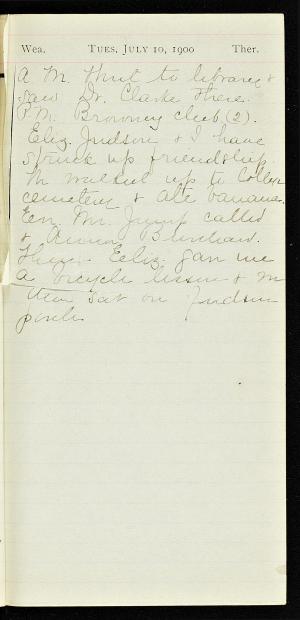 Wea. TUES. JULY 10, 1900 Ther.
A M. Went to library &
saw Dr. Clarke there.
P.M. Browning club (2).
Eliz. Judson & I have
struck up friendship.
We walked up to College
cemetery & ate bananas.
Eve. Mr. Jump called
& Anna Blanchard.
Then Eliz. gave me
a bicycle lesson & we
then sat on Judson
porch